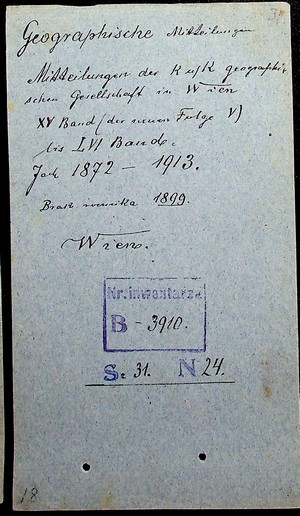 3
Geographische Mitteilungen
Mitteilungen der K u K geographi-
schen Gesellschaft in Wien
XV Band (der neuen Folge V)
bis LVI Band.
Jah 1872 – 1913.
Brak rocznika 1899.
Wien.
Nr. inwentarza
B - 3910.
S. 31. N 24.
18